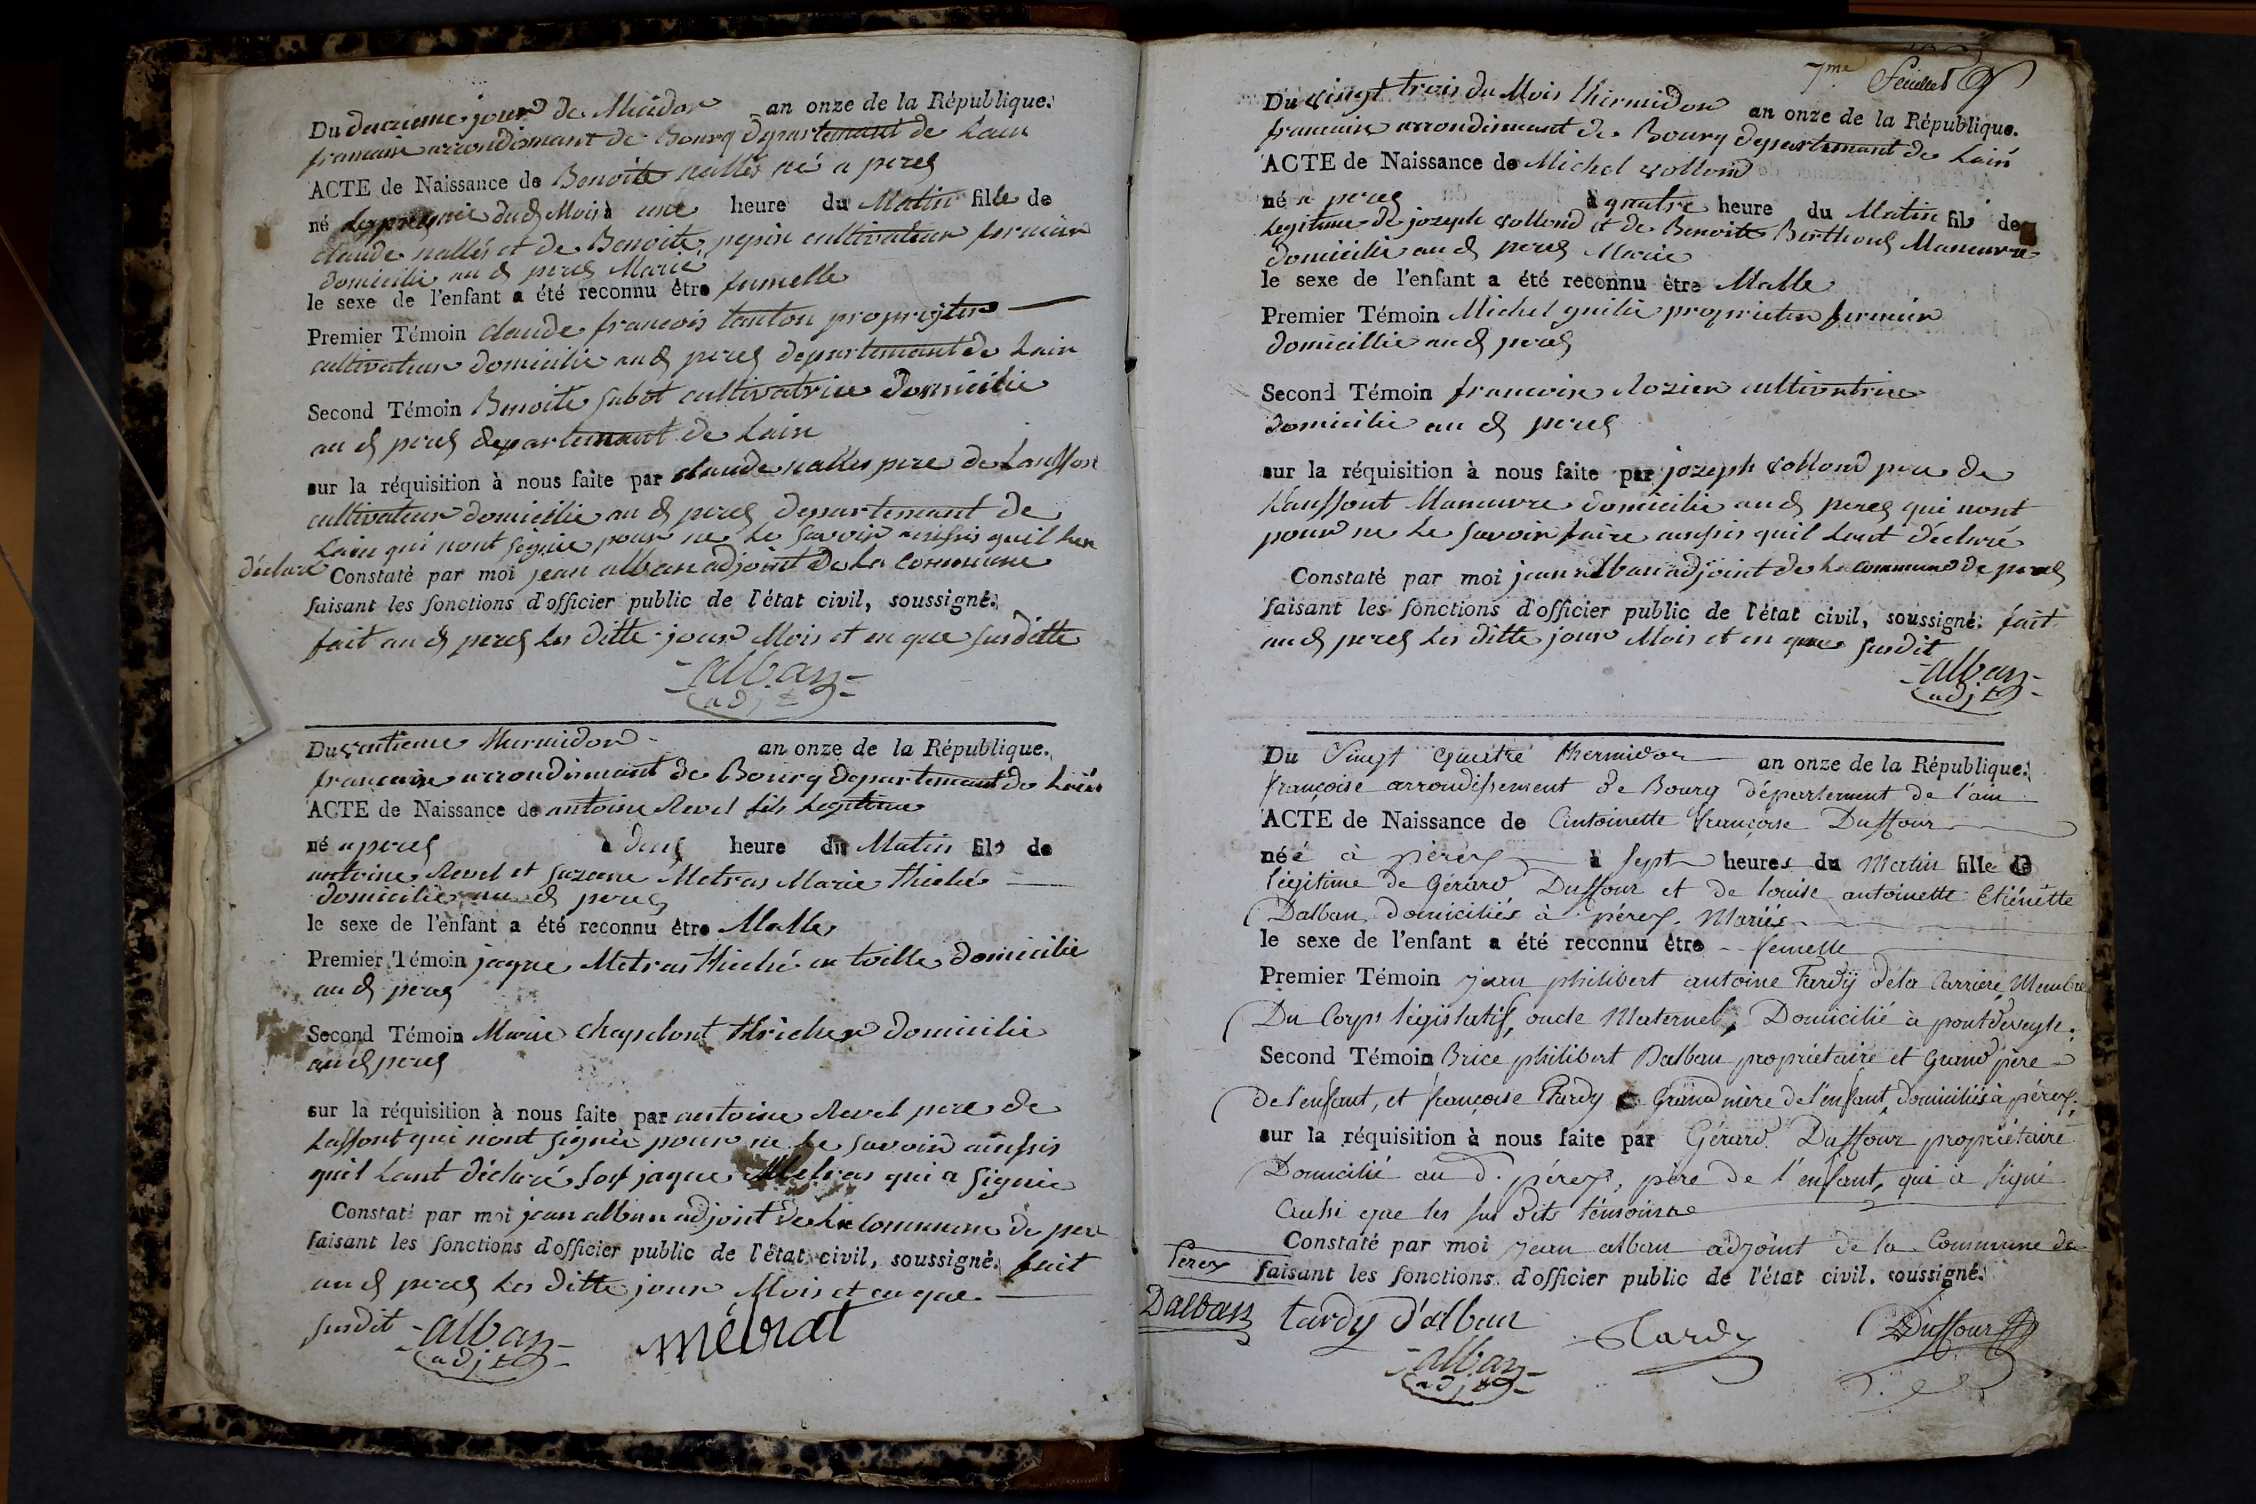 Du deuxieme jour de Mesidor an onze de la République.
francaise arrondismant de Bourq departemant de Lain
ACTE de Naissance de Benoite nallés né a peres
né le premie dud Mois à une heure du Matin fille de
claude nallés et de Benoite pepin cultivateur fermier
domicilie au d peres Marié
le sexe de l'enfant a été reconnu être fumelle
Premier Témoin claude francois tanton proprieter
cultivateur domicilie au d peres departemant de Lain
Second Témoin Benoite sabot cultivatrice domicilie
au d peres departemant de Lain
sur la réquisition à nous faite par claude nalles pere de Lanffon
cultivateur domicilie au d peres departemant de
Lain qui nont signie pour ne le savoir ainssis quil lon
déclaré Constaté par moi jean alban adjoint de La commune
faisant les fonctions d'officier public de l'état civil, soussigné.
fait au d peres les ditte jour Mois et en que susditte
-alban-
adjt
Du ventieme thermidor an onze de la République.
francaise arrondismant de Bourq departemant de Lain
ACTE de Naissance de antoine Revel fils Legitime
né a peres à deux heure du Matin fils de
antoine Revel et suzane Metras Marie thiché
domicilie au d peres
le sexe de l'enfant a été reconnu être Malle
Premier Témoin jaque Metras thiché en toille domicilie
au d peres
Second Témoin Marie chapelont thricher domicilie
au d peres
sur la réquisition à nous faite par antoine Revel pere de
Laffont qui nont signie pour ne le savoir ainssis
quil Lant déclaré sof jaque Metras qui a signie
Constaté par moi jean alban adjoint de La Commune de pere
faisant les fonctions d'officier public de l'état civil, soussigné. fait
au d peres les ditte jour Mois et en que
susdit -alban-
adjt
métrat
7me feuillet
Du vingt trois du Mois thermidor an onze de la République.
francaise arrondismant de Bourq departemant de Lain
ACTE de Naissance de Michel vollond
né a peres à quatre heure du Matin fils de
Legitime de jozeph vollond et de Benoite Berthoud Maneuvre
domicilie au d peres Marie
le sexe de l'enfant a été reconnu être Malle
Premier Témoin Michel guilié proprieter fermier
domicillie au d peres
Second Témoin francoise Rozier cultivatrice
domicilie au d peres
sur la réquisition à nous faite par jozeph vollond pere de
Lanffont Maneuvre domicilie au d peres qui nont
pour ne le savoir faire ainssis quil Lont déclaré
Constaté par moi jean alban adjoint de La commune de peres
faisant les fonctions d'officier public de l'état civil, soussigné. fait
au d peres les ditte jour Mois et en que susdit
-alban-
adjt
Du Vingt quatre thermidor an onze de la République.
françoise arrondissement de Bourg département de l'ain
ACTE de Naissance de Antoinette françoise Duffour
née à pérex à Sept heures du matin fille de
légitime de Gérard Duffour et de louise antoinette Etiénette
Dalban domiciliés à pérex. Mariés
le sexe de l'enfant a été reconnu être femelle
Premier Témoin jean philibert antoine Tardy dela Carriere Membre
Du Corps législatif, oncle Maternel, Domicilié à pontdeveyle.
Second Témoin Brice philibert Dalban propriétaire et Grand père
De l'enfant, et françoise Tardy Grand mère de l'enfant, domiciliés à pérex.
sur la réquisition à nous faite par Gérard Duffour propriétaire
Domicilié au d. pérex, père de l'enfant, qui à signé
Aussi que les sus dits témoins
Constaté par moi jean alban adjoint de la Commune de
Perex faisant les fonctions d'officier public de l'état civil. soussigné.
Dalban tardy d'alban Tardy Duffour
-alban-
adjt